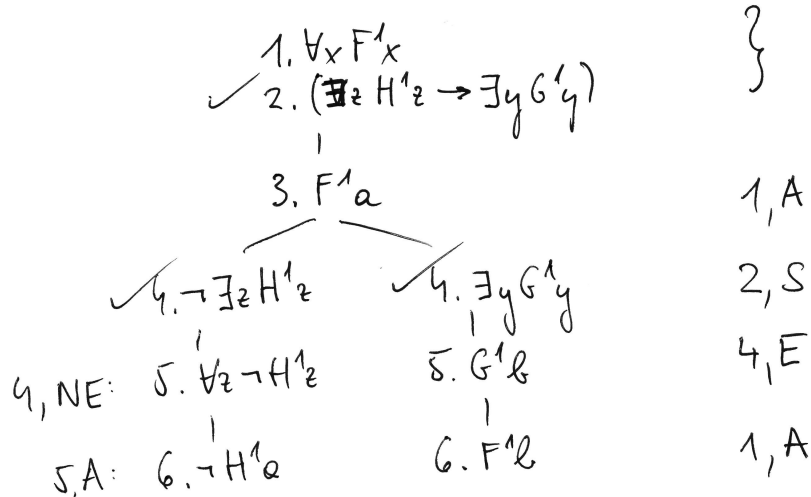 1. ∀x F¹x }
✓ 2. (∃z H¹z → ∃y G¹y)
3. F¹a 1, A
✓ 4. ¬∃z H¹z ✓ 4. ∃y G¹y 2, S
4, NE: 5. ∀z ¬H¹z 5. G¹b 4, E
5, A: 6. ¬H¹a 6. F¹b 1, A